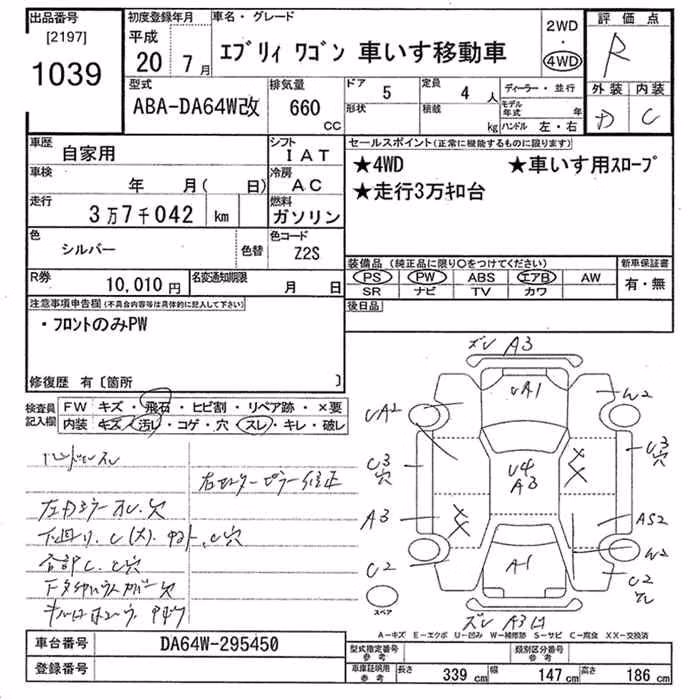 出品番号
[2197]
1039
初度登録年月
平成
20 7月
車名・グレード
エブリィ ワゴン 車いす移動車
2WD
・
4WD
評価点
R
外装 内装
D C
型式
ABA-DA64W改
排気量
660
CC
ドア 5
形状
定員 4 人
積載 kg
ディーラー・並行
モデル年式 年
ハンドル 左・右
車歴
自家用
シフト
IAT
車検
年 月( 日)
冷房
AC
走行
3万7千042 km
燃料
ガソリン
色
シルバー
色替
色コード
Z2S
R券
10,010円
名変通知期限
月 日
セールスポイント(正常に機能するものに限ります)
★4WD ★車いす用スロープ
★走行3万キロ台
装備品(純正品に限り○をつけてください)
PS PW ABS エアB AW
SR ナビ TV カワ
新車保証書
有・無
後日品
注意事項申告欄(不具合内容等は具体的に記入して下さい)
・フロントのみPW
修復歴 有〔箇所 〕
検査員記入欄
FW キズ・飛石・ヒビ割・リペア跡・×要
内装 キズ・汚レ・コゲ・穴・スレ・キレ・破レ
ハンドルスレ
右センターピラー修正
ズレ A3
UA1
UA2
W2
U3
穴
C3
穴
U4
A3
A3
AS2
W2
C2
A1
C2
スペア
A-キズ E-エクボ U-凹み W-補修跡 S-サビ C-腐食 XX-交換済
車台番号
DA64W-295450
登録番号
型式指定番号
参考
類別区分番号
参考
車庫証明用
参考
長さ 339 cm 幅 147 cm 高さ 186 cm